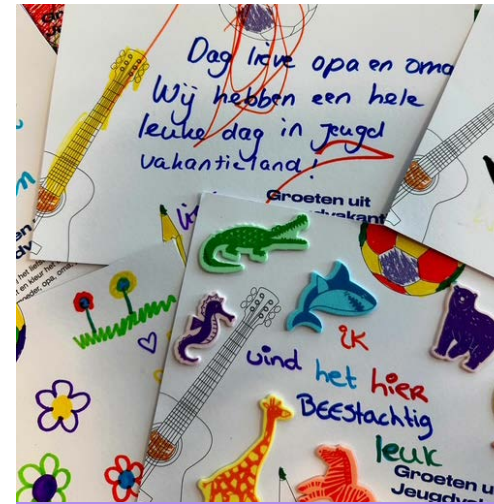 Groeten
Dag lieve opa en oma
Wij hebben een hele
leuke dag in jeugd
vakantieland!
Groeten uit
dvakant
ik
vind het hier
BEEStachtig
leuk
Groeten u
Jeugdv